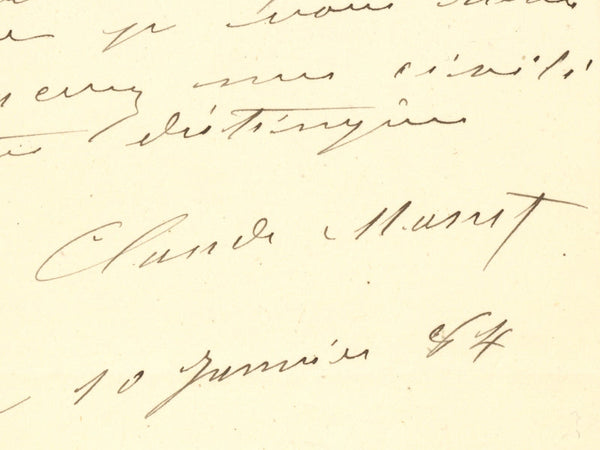 je vous
mes civili
tés distinguées
Claude Monet
10 Janvier 84